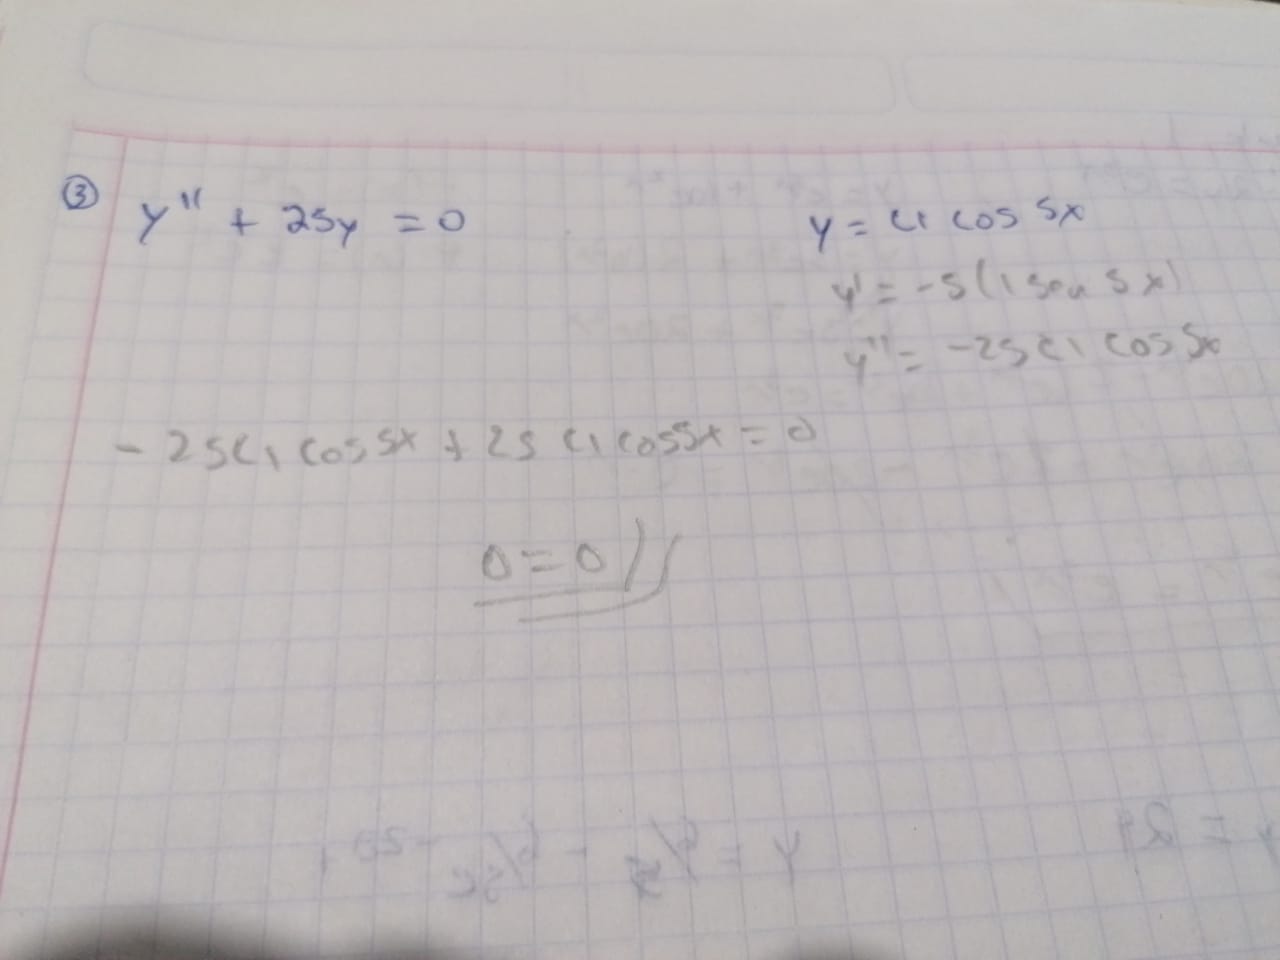 ③ y'' + 25y = 0
y = C1 cos 5x
y' = -5C1 sen 5x
y'' = -25C1 cos 5x
- 25C1 cos 5x + 25 C1 cos 5x = 0
0 = 0 //